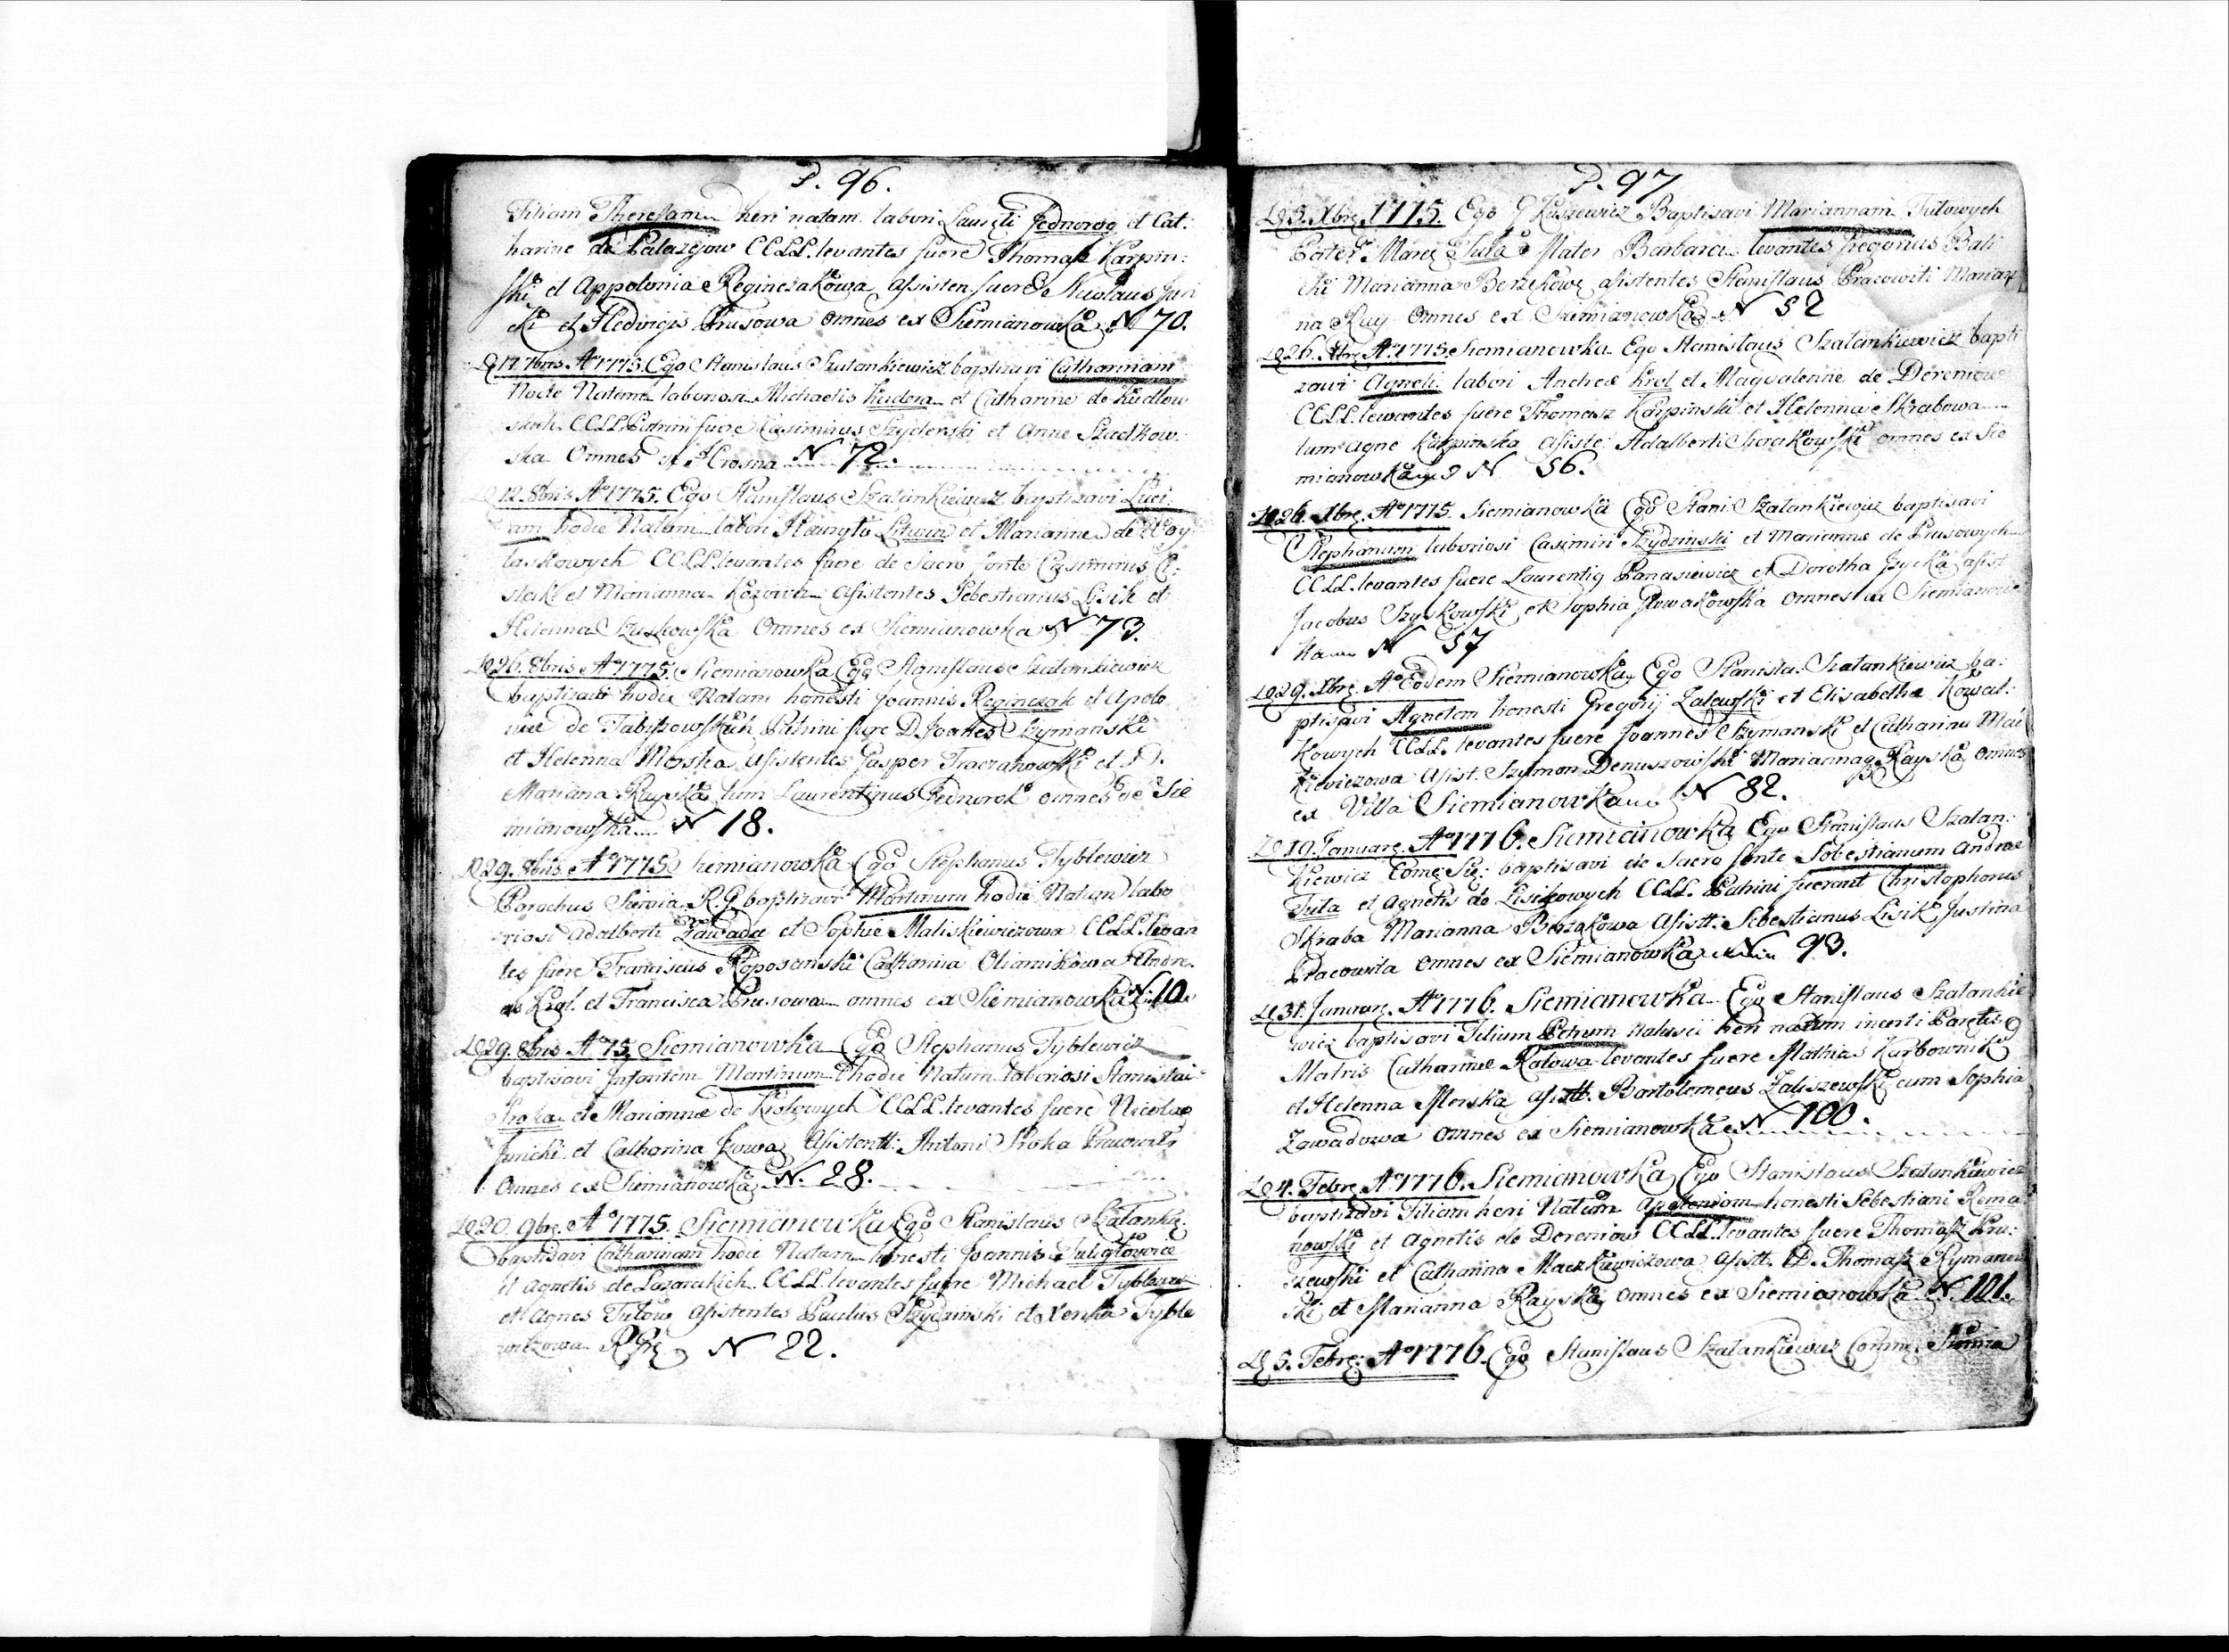 P. 96.
Filiam Theresam heri natam labori Laureti Jednorog et Cat:
harine de Palazejow CCLL. levantes fuere Thomasz Karpin:
ski et Appolonia Reginczakowa assisten. fuere Nicolaus Juri
cki et Hedvigis Prusowa omnes ex Siemianowka N 70.
D 17. 7bris A° 1775. Ego Stanislaus Szatankiewicz baptizavi Catharinam
hodie Natam laboriosi Michaelis Kudera et Catharine de Kudlow
skich CCLL. Patrini fuere Casimirus Szyderski et Anna Szadkow:
ska Omnes ex Krosna N 72.
D 12. 8bris A° 1775. Ego Stanislaus Szatankiewicz baptizavi Luci:
am hodie Natam labori Litwin et Marianne de Woy
taskowych CCLL levantes fuere de Sacro fonte Casimirus
et Marianna Kozowa assistentes Sebestianus Lisik et
Helenna Szuskowska Omnes ex Siemianowka N 73.
D 26. 8bris A° 1775. Siemianowka Ego Stanislaus Szatankiewicz
baptizavi hodie Natam honesti Joannis Reginczak et Apolo
nie de Patrini fuere D. Joannes Szymanski
et Helenna Morska Assistentes Gasper et D.
Mariana Rayska tum Laurentinus Jednorok omnes de Sie
mianowska N 18.
D 29. 8bris A° 1775 Siemianowka Ego Stephanus Tyblewicz
Parochus R. G. baptizavi Martinum hodie Natum labo
riosi Adalberti Zawada et Sophie Maliskiewiczowa CCLL. levan
tes fuere Franciscus Catharina Andre.
as Krol. et Francisca Prusowa omnes ex Siemianowka N. 10.
D 29. 8bris A° 75 Siemianowka Ego Stephanus Tyblewicz
baptisavi Infantem Martinum hodie Natum laboriosi Stanislai
Sroka et Marianne de Krolowych CCLL. levantes fuere Nicolaus
Juricki et Catharina Assistentt: Antoni Sroka
Omnes ex Siemianowka N. 28.
D 20. 9bre. A° 1775. Siemianowka Ego Stanislaus Szatankie:
baptisavi Catharinam hodie Natam honesti Joannis
et Agnetis de Lazarukich CCLL. levantes fuere Michael
et Agnes Assistentes Paulus Szydzinski et Xenka Tyble
wiczowa N 22.
P. 97
D 3. Xbre. 1775. Ego G Kuszewicz Baptisavi Mariannam Tutowych
Pater Marci Tuta Mater Barbara levantes Gregorius Bali
cki Marianna Berzekowa asistentes Stanislaus Pracowiti Marian
na Kuy Omnes ex Siemianowka N 52
D 26. Xbre A° 1775 Siemianowka Ego Stanislaus Szatankiewicz bapti
zavi Agneti labori Andreae Krol et Magdalenne de Dereniow
CCLL. lewantes fuere Thomasz Karpinski et Helenna Skrabowa
tum Agne Karpinska Assiste: Adalberti omnes ex Sie
mianowka N 56.
D 26. Xbre. A° 1775. Siemianowka Ego Stani: Szatankiewicz baptisavi
Stephanum laboriosi Casimiri Szydzinski et Marianne de Prusowych
CCLL. levantes fuere Laurentius Panasiewicz et Dorotha Juricka assist
Jacobus et Sophia omnes ex Siemianow
ka N 57
D 29. Xbre. A° Eodem Siemianowka Ego Stanisla. Szatankiewicz ba:
ptisavi Agnetem honesti Gregorij Zalewski et Elisabetha Kowal:
kowych CCLL. levantes fuere Joannes Szymanski et Catharina Mac
kiewiczowa Asist. Szymon Denuszowski Marianna Rayska omnes
ex Villa Siemianowka N 82.
D 19. Januare. A° 1776. Siemianowka Ego Stanislaus Szatan:
kiewicz baptisavi de Sacro fonte Sobestianum Andrae
Tuta et Agnetis de Lisikowych CCLL. Patrini fuerunt Christophorus
Skraba Marianna Berzakowa Assistt: Sebestianus Lisik, Justina
Pracowita omnes ex Siemianowka N 93.
D 31. Januare. A° 1776. Siemianowka Ego Stanislaus Szatankie
wicz baptisavi Filium Petrum heri natum incerti Parentis
Matris Catharinae Rolowa levantes fuere Mathias Karbownik
et Helenna Morska Assistt. Bartolomeus Zaliszewski cum Sophia
Zawadowa omnes ex Siemianowka N 100.
D 4. Febre A° 1776. Siemianowka Ego Stanislaus Szatankiewicz
baptizavi Filiam heri Natam Apoloniam honesti Sebestiani Roma
nowski et Agnetis de Dereniow CCLL. levantes fuere Thomasz Kru:
szewski et Catharina Mackiewiczowa Assistt. D. Thomasz Rymanow
ski et Marianna Rayska omnes ex Siemianowka N. 101.
D 5. Febre: A° 1776. Ego Stanislaus Szatankiewicz